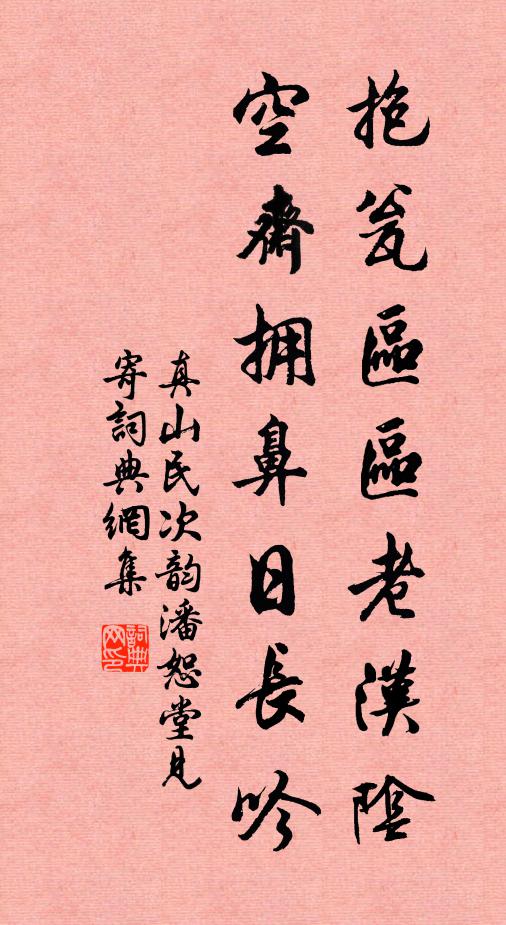 抱瓮區區老漢陰
空齋拥鼻日長吟
真山民次韵潘恕堂見
寄詞典網集
詞典网印